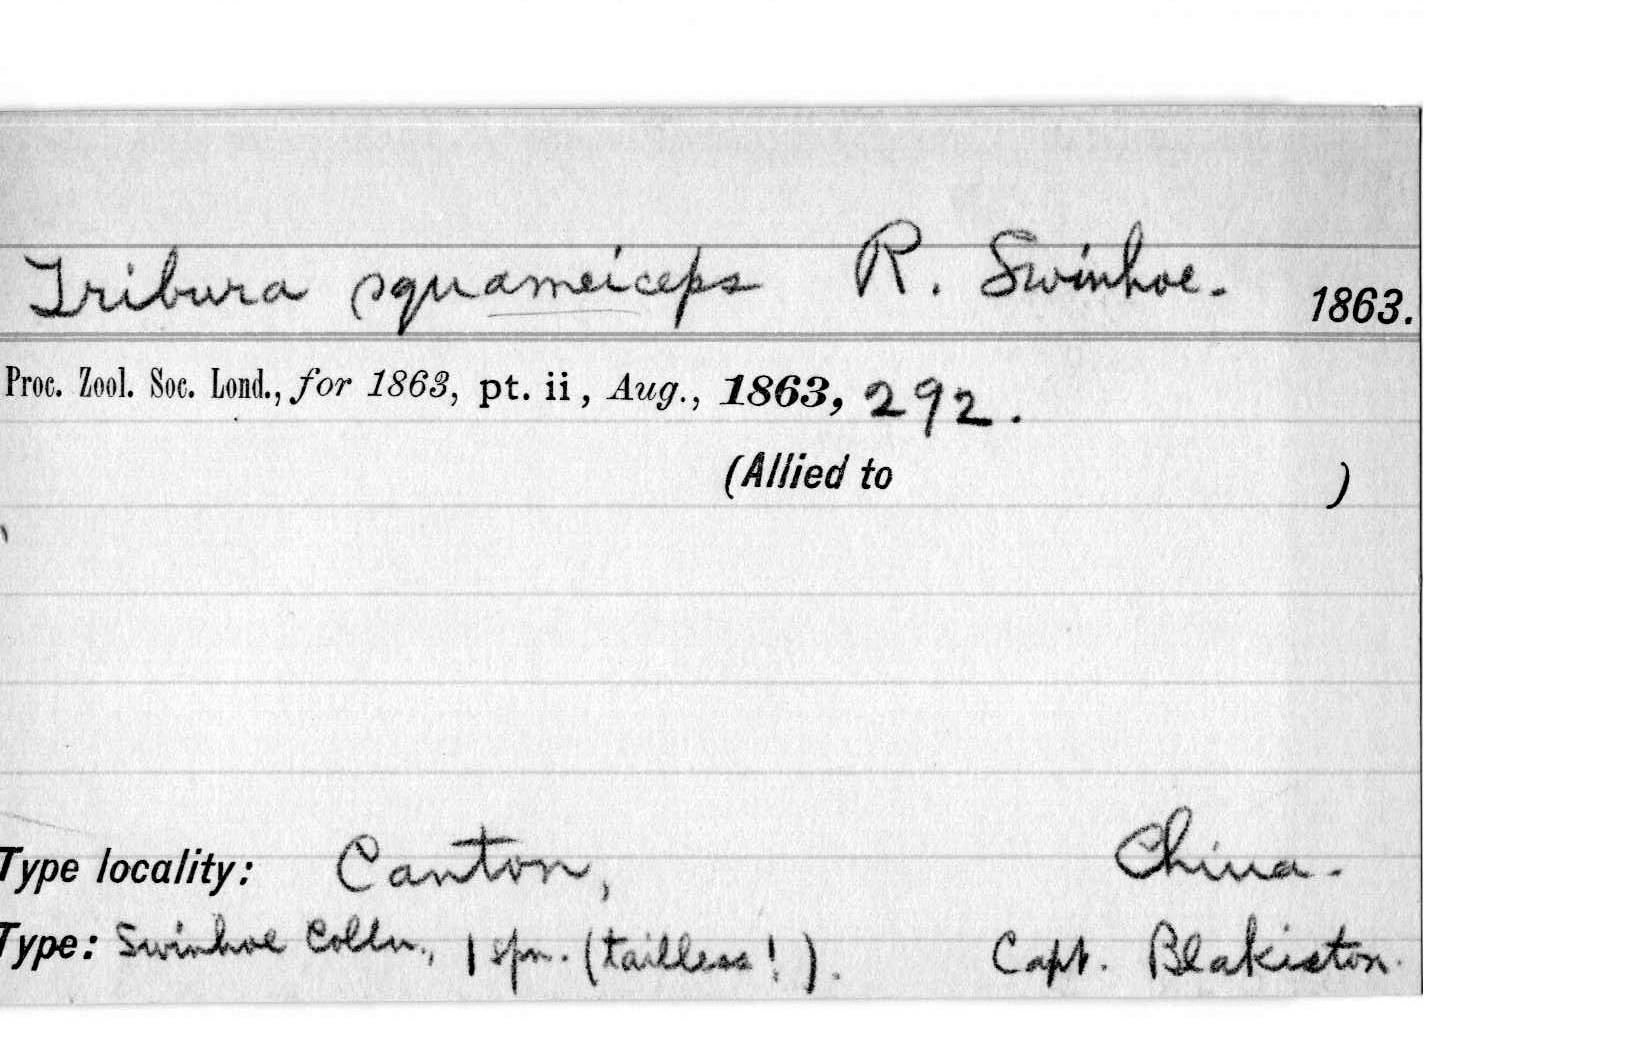 Tribura squameiceps R. Swinhoe. 1863.
Proc. Zool. Soc. Lond., for 1863, pt. ii, Aug., 1863, 292.
(Allied to )
Type locality: Canton, China.
Type: Swinhoe Colln., 1 spn. (tailless!). Capt. Blakiston.